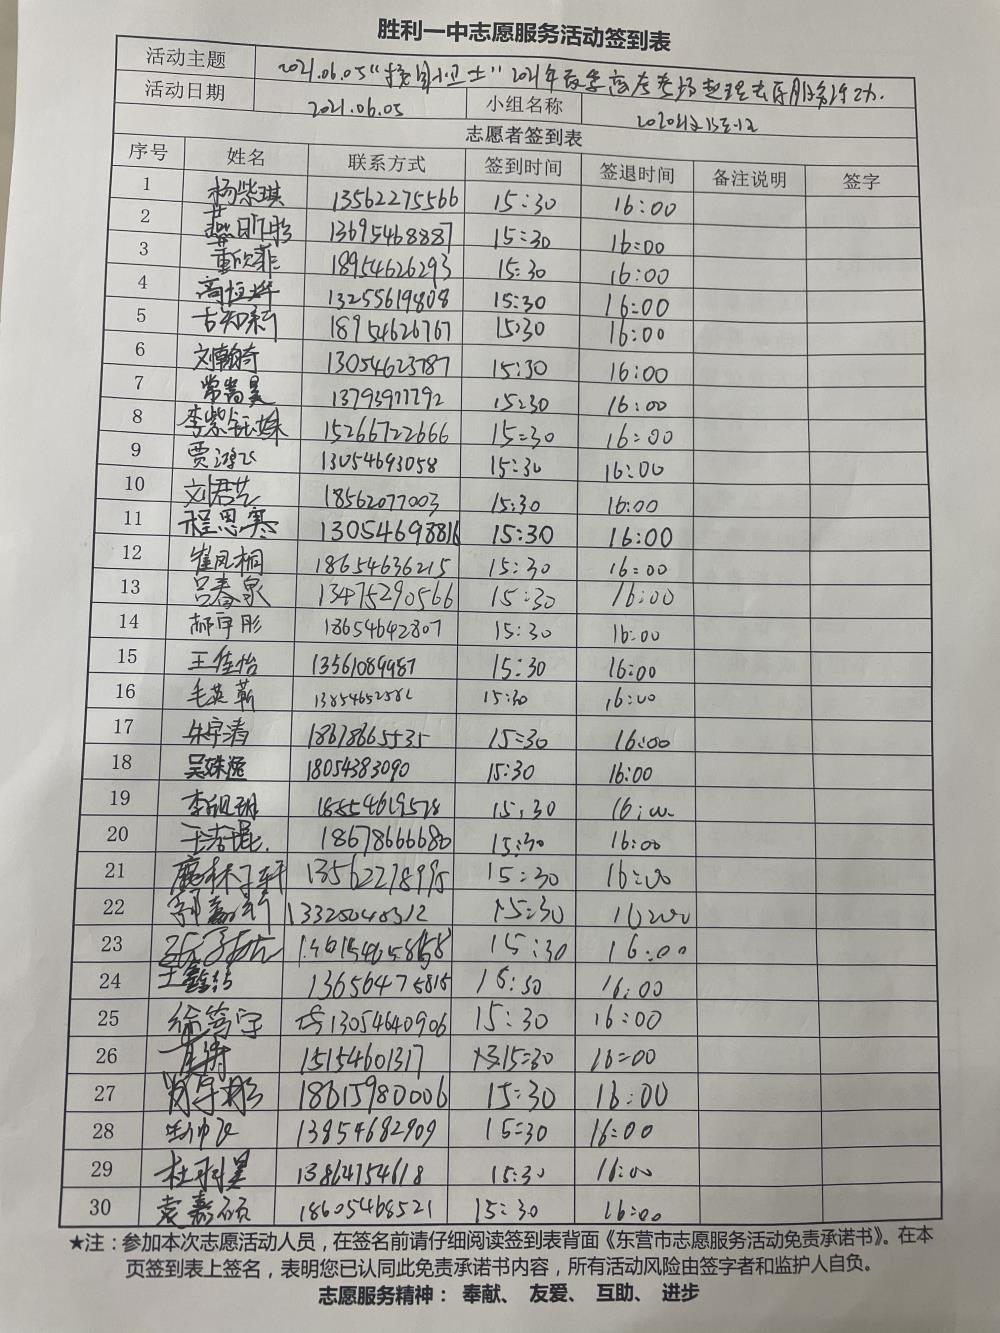 胜利一中志愿服务活动签到表
活动主题 2021.06.05“校园小卫士”2021年夏季高考考场整理志愿服务活动.
活动日期 2021.06.05 小组名称 2020级
志愿者签到表
序号 姓名 联系方式 签到时间 签退时间 备注说明 签字
1 杨紫琪 13562275566 15:30 16:00
2 13695468887 15:30 16:00
3 董欣菲 18954626293 15:30 16:00
4 高恒烨 13255619808 15:30 16:00
5 古知新 18954626767 15:30 16:00
6 刘翰奇 13054623787 15:30 16:00
7 常嵩昊 13793977792 15:30 16:00
8 李紫钰姝 15266722666 15:30 16:00
9 贾鸿飞 13054693058 15:30 16:00
10 刘君艺 18562077003 15:30 16:00
11 程思寒 13054698816 15:30 16:00
12 崔凤桐 18654636215 15:30 16:00
13 吕春泉 13475290566 15:30 16:00
14 郝宇彤 18654642807 15:30 16:00
15 王佳怡 13561089987 15:30 16:00
16 毛英蕲 15:30 16:00
17 朱宇清 18678865535 15:30 16:00
18 吴姝逸 18054383090 15:30 16:00
19 15:30 16:00
20 18678666680 15:30 16:00
21 鹿林子轩 13562278995 15:30 16:00
22 郭嘉新 13325048312 15:30 16:00
23 15:30 16:00
24 王鑫洁 13656475815 15:30 16:00
25 徐笃宇 13054640906 15:30 16:00
26 15154601317 15:30 16:00
27 18615980006 15:30 16:00
28 13854682909 15:30 16:00
29 杜羽昊 13864754618 15:30 16:00
30 袁嘉硕 18605468521 15:30 16:00
★注：参加本次志愿活动人员，在签名前请仔细阅读签到表背面《东营市志愿服务活动免责承诺书》。在本
页签到表上签名，表明您已认同此免责承诺书内容，所有活动风险由签字者和监护人自负。
志愿服务精神： 奉献、 友爱、 互助、 进步